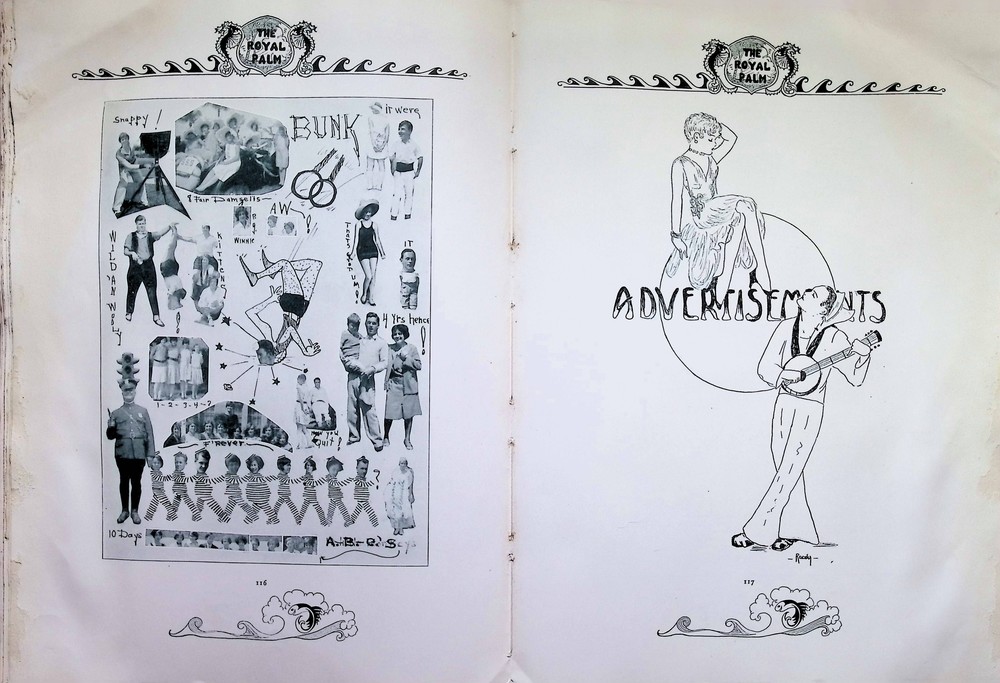 THE
ROYAL
PALM
Snappy!
BUNK
it were
8 Fair Damzells
AW-!
WINNIE
WILD AN WOLY
KITTENS
THATS YOR UM!
IT
4 Yrs hence!
1-2-3-4-?
F'rever
Quit!
?
10 Days
A-B-C's
116
THE
ROYAL
PALM
ADVERTISEMENTS
117